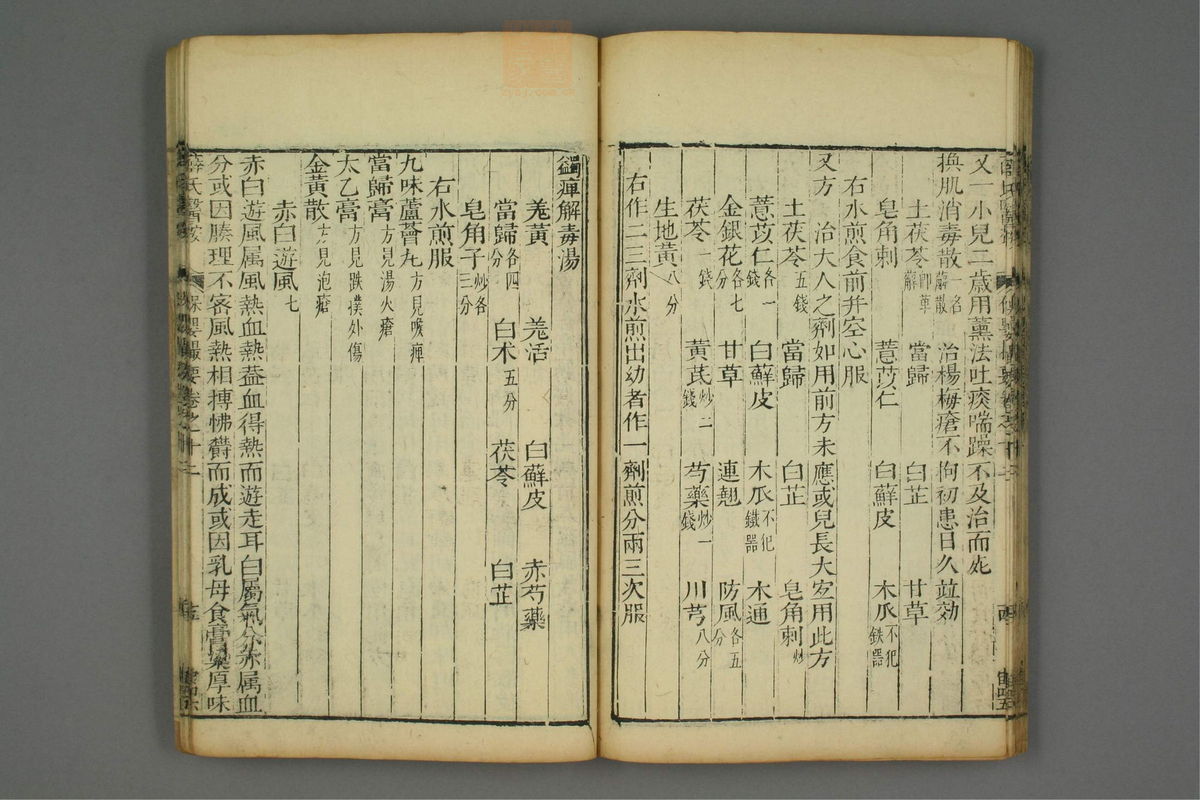 又一小兒二歲用薰法吐痰喘躁不及治而歿
換肌消毒散一名萆薢散 治楊梅瘡不拘初患日久竝効
土茯苓卽萆薢 當歸 白芷 甘草
皂角刺 薏苡仁 白蘚皮 木瓜不犯鉄器
右水煎食前并空心服
又方 治大人之劑如用前方未應或兒長大宜用此方
土茯苓五錢 當歸 白芷 皂角刺炒
薏苡仁各一錢 白蘚皮 木瓜不犯鐵器 木通
金銀花各七分 甘草 連翹 防風各五分
茯苓一錢 黃芪炒二錢 芍藥炒一錢 川芎八分
生地黃八分
右作二三劑水煎出幼者作一劑煎分兩三次服
蠲痺解毒湯
羗黃 羗活 白蘚皮 赤芍藥
當歸各四分 白术五分 茯苓 白芷
皂角子炒各三分
右水煎服
九味蘆薈丸方見喉痺
當歸膏方見湯火瘡
太乙膏方見跌撲外傷
金黃散方見泡瘡
赤白遊風七
赤白遊風属風熱血熱葢血得熱而遊走耳白屬氣分赤属血
分或因腠理不宻風熱相摶怫欝而成或因乳母食膏粱厚味
薛氏醫案
保嬰撮要卷之十二